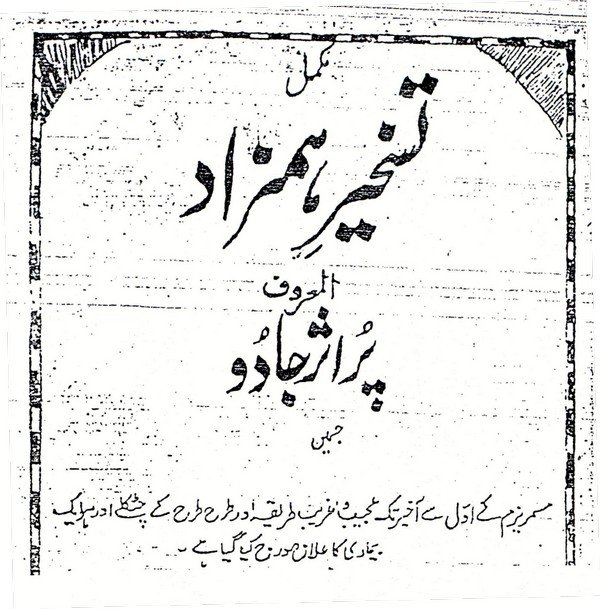 مکمل
تسخیرِ ہمزاد
المعروف
پُر اثر جادُو
جسمیں
مسمریزم کے اوّل سے آخیر تک عجیب و غریب طریقہ اور طرح طرح کے چٹکلے اور ہر ایک
بیماری کا علاج درج کیا گیا ہے ۔